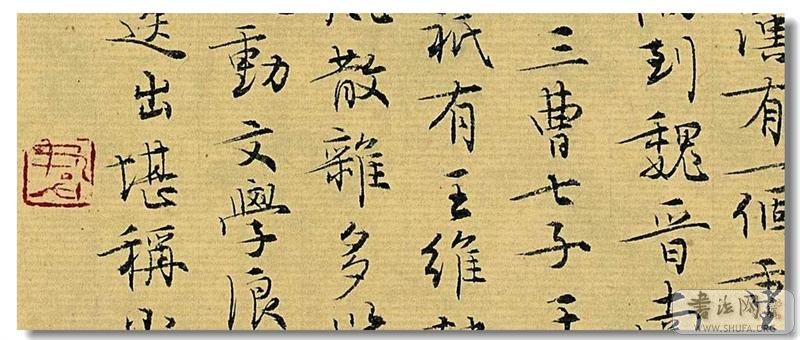 有一個
到魏晉
三曹七子
祇有王維
散雜多
動文學浪
迭出堪稱
書法网
WWW.SHUFA.ORG